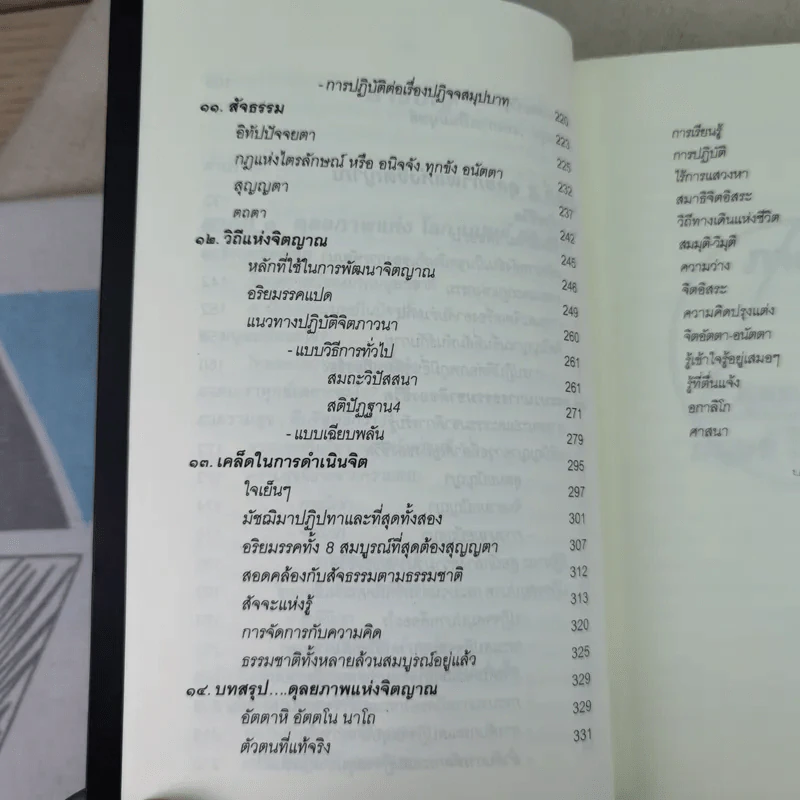 -การปฏิบัติต่อเรื่องปฏิจจสมุปบาท 220
๑๑. สัจธรรม 223
อิทัปปัจจยตา 225
กฎแห่งไตรลักษณ์ หรือ อนิจจัง ทุกขัง อนัตตา 232
สุญญตา 237
ตถตา 242
๑๒. วิถีแห่งจิตญาณ 245
หลักที่ใช้ในการพัฒนาจิตญาณ 248
อริยมรรคแปด 249
แนวทางปฏิบัติจิตภาวนา 260
-แบบวิธีการทั่วไป 261
สมถะวิปัสสนา 261
สติปัฏฐาน4 271
-แบบเฉียบพลัน 279
๑๓. เคล็ดในการดำเนินจิต 295
ใจเย็นๆ 297
มัชฌิมาปฏิปทาและที่สุดทั้งสอง 301
อริยมรรคทั้ง 8 สมบูรณ์ที่สุดต้องสุญญตา 307
สอดคล้องกับสัจธรรมตามธรรมชาติ 312
สัจจะแห่งรู้ 313
การจัดการกับความคิด 320
ธรรมชาติทั้งหลายล้วนสมบูรณ์อยู่แล้ว 325
๑๔. บทสรุป....ดุลยภาพแห่งจิตญาณ 329
อัตตาหิ อัตตโน นาโถ 329
ตัวตนที่แท้จริง 331
การเรียนรู้
การปฏิบัติ
ไร้การแสวงหา
สมาธิจิตอิสระ
วิถีทางเดินแห่งชีวิต
สมมุติ-วิมุติ
ความว่าง
จิตอิสระ
ความคิดปรุงแต่ง
จิตอัตตา-อนัตตา
รู้เข้าใจรู้อยู่เสมอๆ
รู้ที่ตื่นแจ้ง
อกาลิโก
ศาสนา